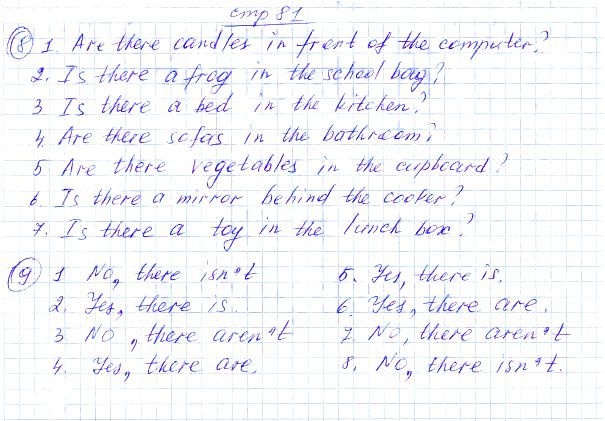 стр 81
8 1. Are there candles in front of the computer?
2. Is there a frog in the school bag?
3 Is there a bed in the kitchen?
4. Are there sofas in the bathroom?
5 Are there vegetables in the cupboard?
6 Is there a mirror behind the cooker?
7. Is there a toy in the lunch box?
9 1 No, there isn't 5. Yes, there is.
2. Yes, there is. 6. Yes, there are.
3 No, there aren't 7. No, there aren't
4. Yes, there are. 8. No, there isn't.